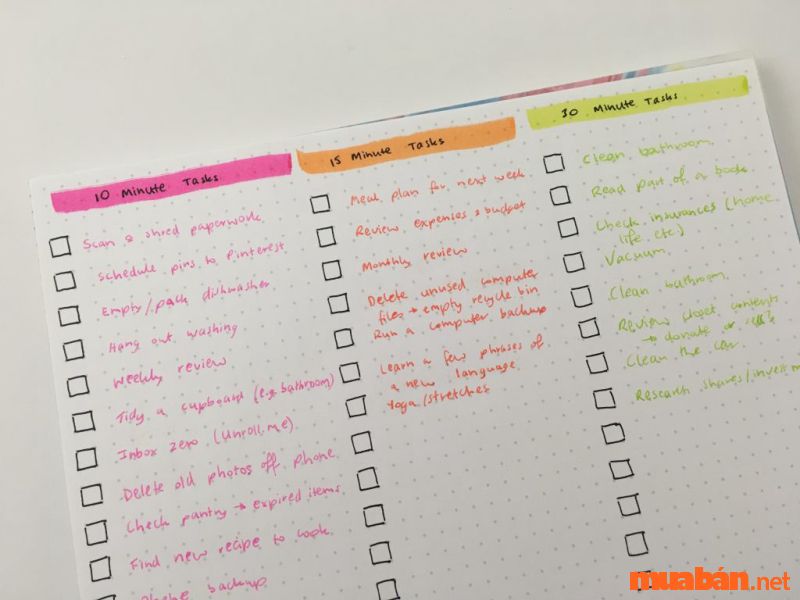 10 Minute Tasks
Scan & shred paperwork
Schedule pins to Pinterest
Empty/pack dishwasher
Hang out washing
Weekly review
Tidy a cupboard (e.g. bathroom)
Inbox zero (unroll.me)
Delete old photos off phone
Check pantry → expired items
Find new recipe to cook
Phone backup
15 Minute Tasks
Meal plan for next week
Review expenses & budget
Monthly review
Delete unused computer
files + empty recycle bin
Run a computer backup
Learn a few phrases of
a new language
Yoga/stretches
30 Minute Tasks
Clean bathroom
Read part of a book
Check insurances (home
life etc)
Vacuum
Clean bathroom
Review closet contents
→ donate or
Clean the car
Research shares/investm
muabán.net